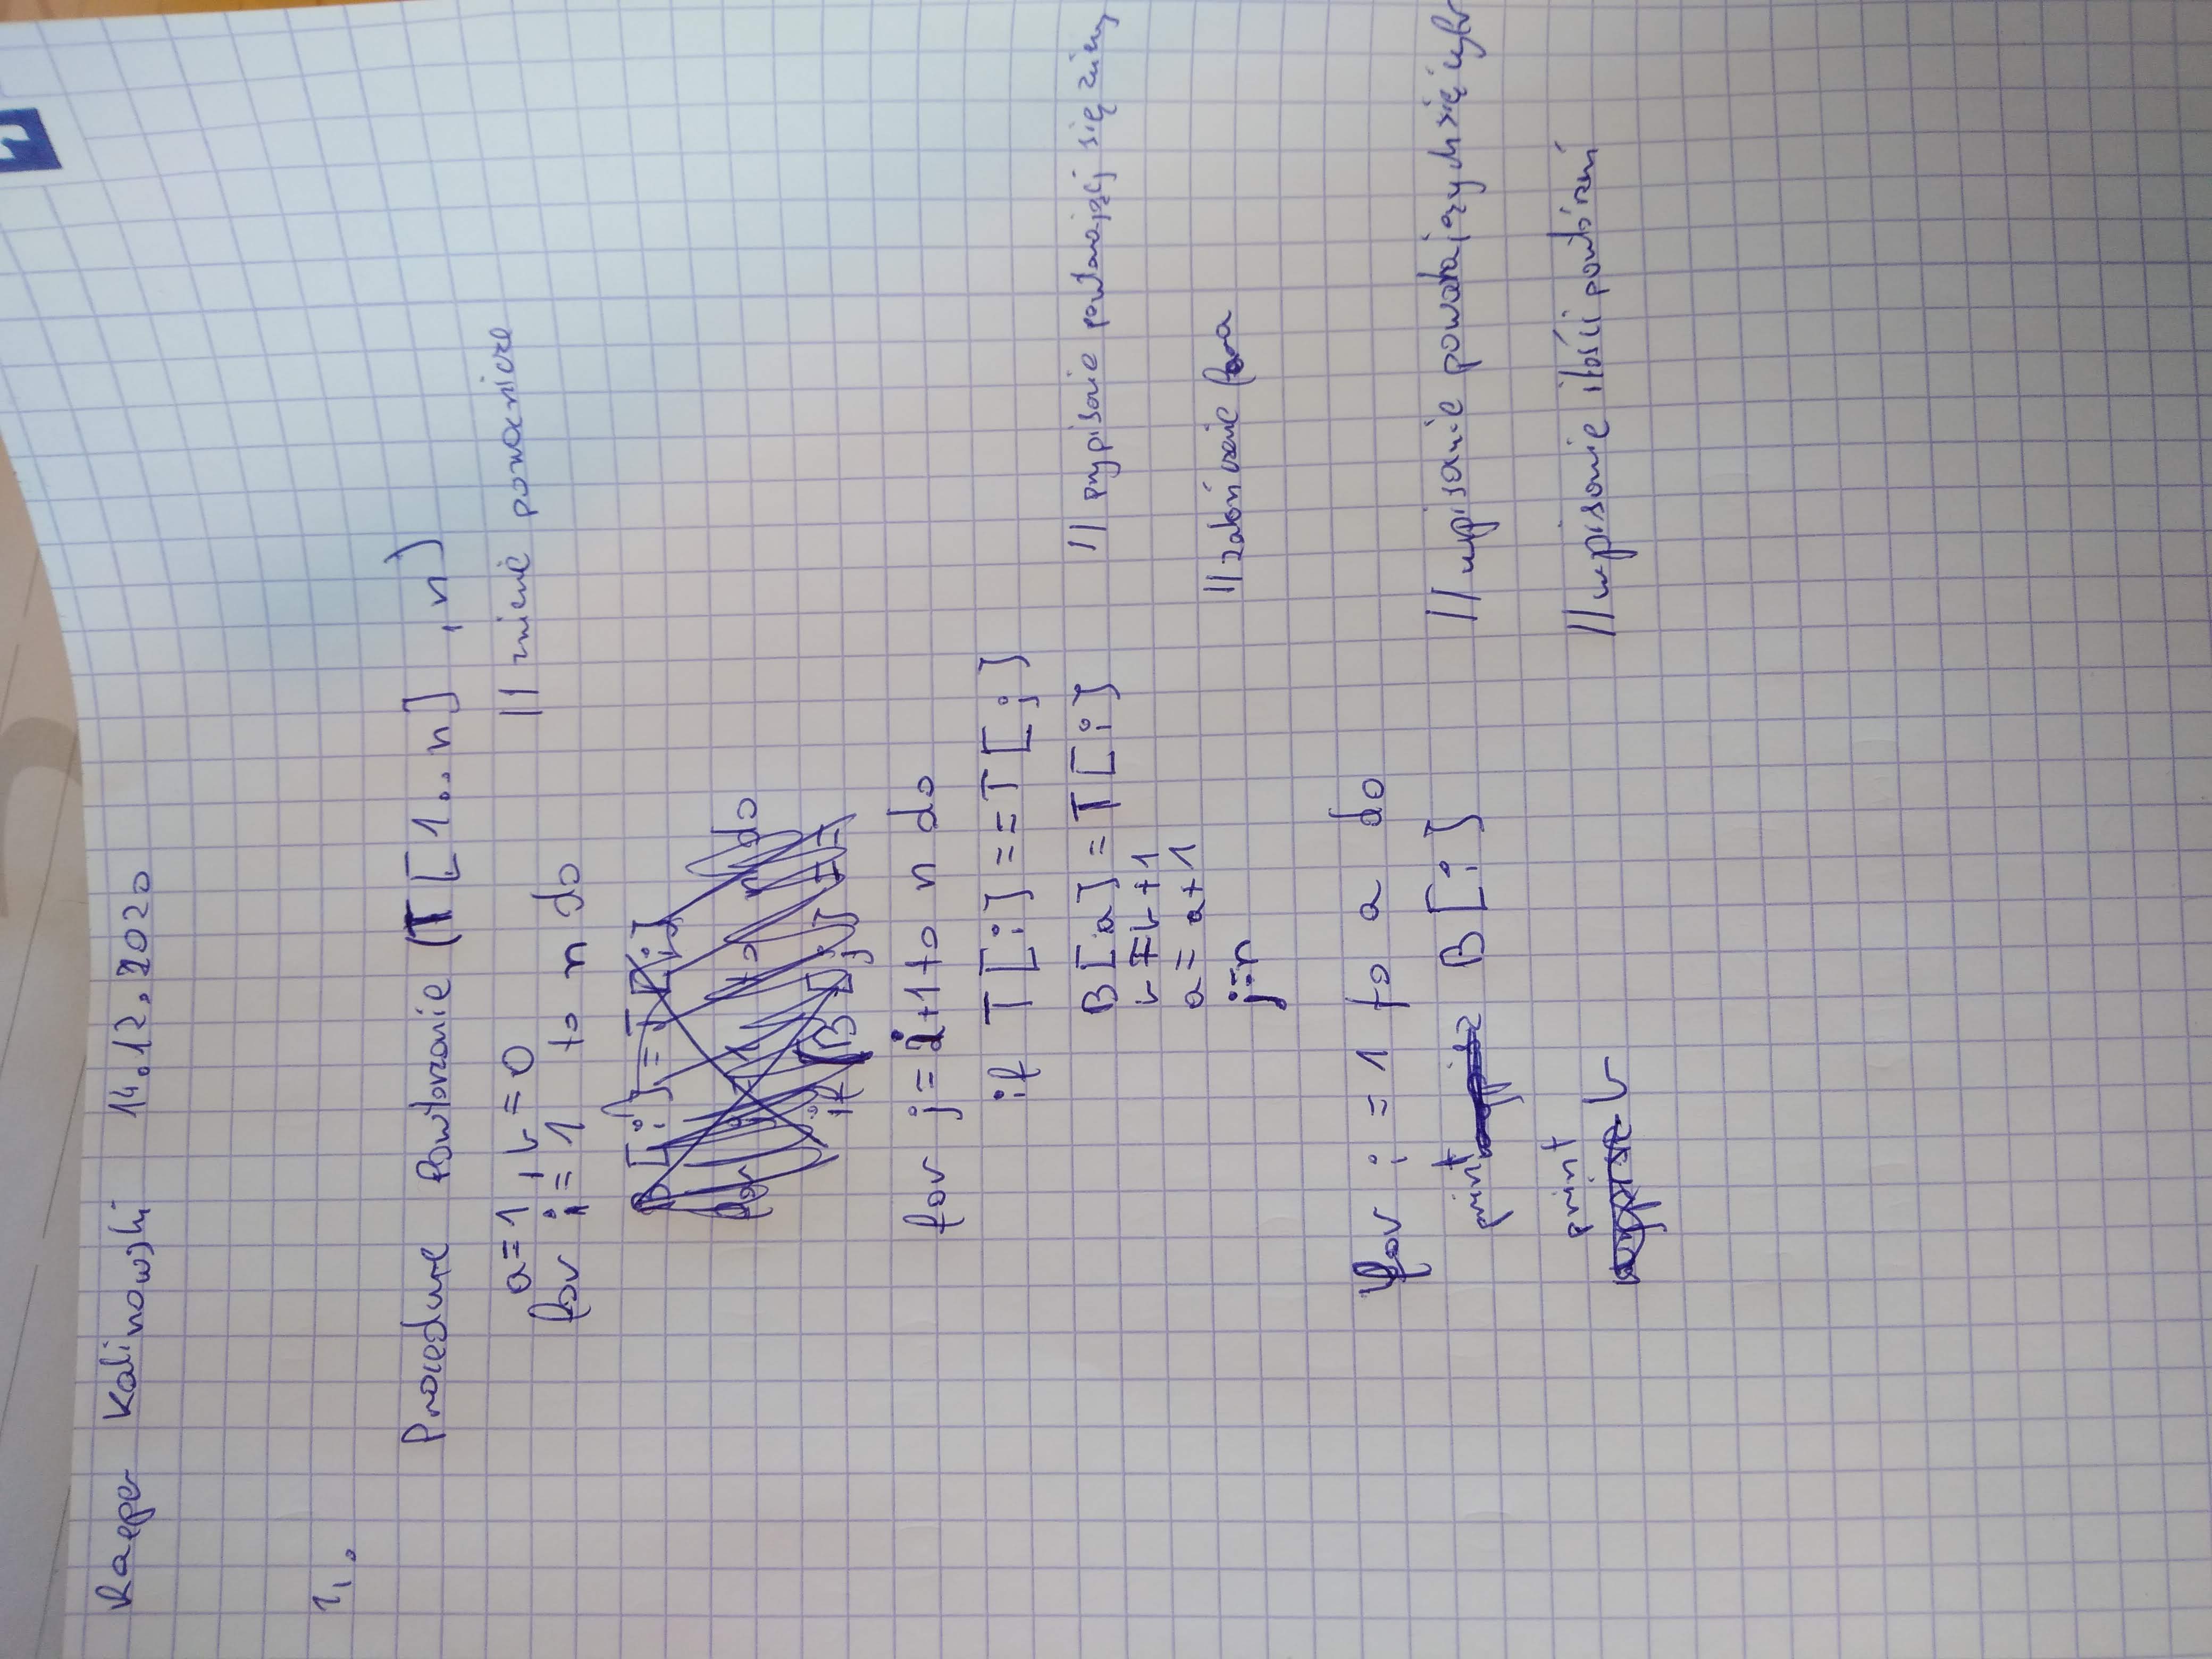 Kacper Kalinowski 14.12.2020
1.
Procedure Powtorzanie (T[1..n], n)
a=1, b=0 // zmienne pomocnicze
for i=1 to n do
for j=i+1 to n do
if T[i]==T[j]
B[a]=T[i] // przypisanie powtarzajęj się zmieny
b=b+1
a=a+1
j=n // zakończenie fora
for i=1 to a do
print B[i] // wypisanie powtarzajęzych się cyfr
print b // wypisanie ilości powtórzeń